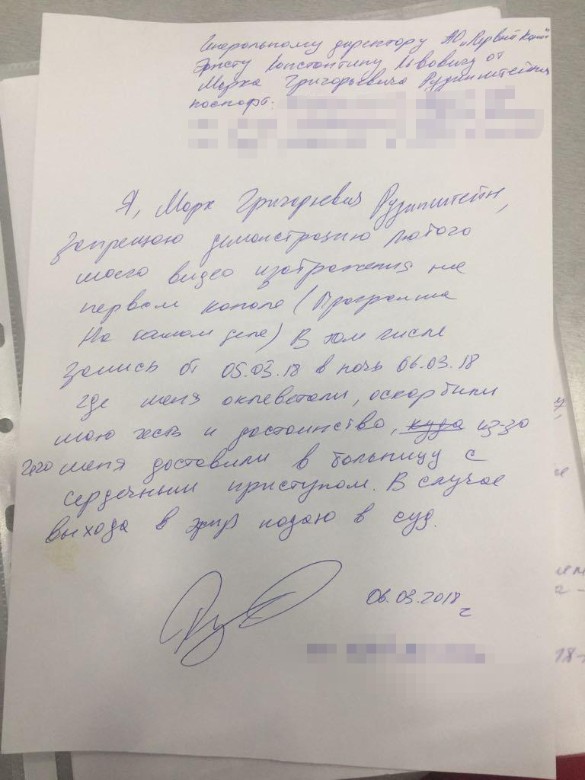 Генеральному директору АО "Первый Канал
Эрнсту Константину Львовичу от
Марка Григорьевича Рудинштейна
паспорт.
Я, Марк Григорьевич Рудинштейн,
запрещаю демонстрацию любого
моего видео изображения на
первом канале (Программа
На самом деле) В том числе
запись от 05.03.18 в ночь 06.03.18
где меня оклеветали, оскорбили
мою честь и достоинство, куда из-за
чего меня доставили в больницу с
сердечным приступом. В случае
выхода в эфир подаю в суд.
06.03.2018
г